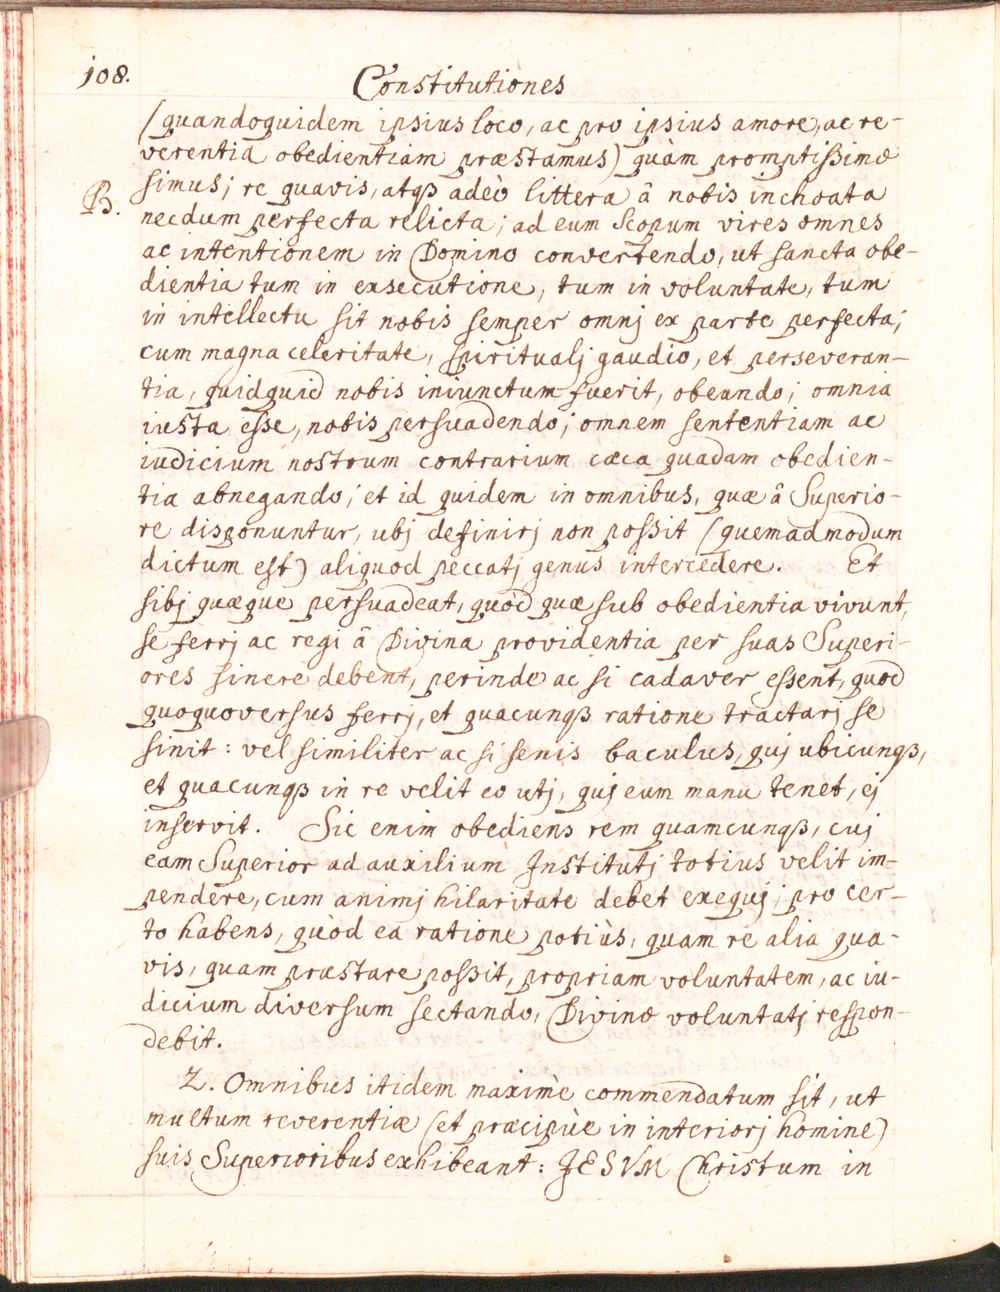 108.
Constitutiones
(quandoquidem ipsius loco, ac pro ipsius amore, ac re-
verentia obedientiam præstamus) quàm promptißime
simus; re quavis, atqß adeò littera â nobis inchoata
B.
necdum perfecta relicta; ad eum scopum vires omnes
ac intentionem in Domino convertendo, ut sancta obe-
dientia tum in exsecutione, tum in voluntate, tum
in intellectu sit nobis semper omnj ex parte perfecta;
cum magna celeritate, spiritualj gaudio, et perseveran-
tia, quidquid nobis iniunctum fuerit, obeundo; omnia
iusta esse, nobis persuadendo; omnem sententiam ac
iudicium nostrum contrarium cæca quadam obedien-
tia abnegando; et id quidem in omnibus, quæ â Superio-
re disponuntur, ubj definirj non poßit (quemadmodum
dictum est) aliquod peccatj genus intercedere. Et
sibj quæque persuadeat, quòd quæ sub obedientia vivunt,
se ferrj ac regi â Divina providentia per suas Superi-
ores sinere debent, perinde ac si cadaver essent, quod
quoquoversus ferrj, et quacunqß ratione tractarj se
sinit: vel similiter ac si senis baculus, quj ubicunqß,
et quacunqß in re velit eo utj, quj eum manu tenet, ej
inservit. Sic enim obediens rem quamcunqß, cuj
eam Superior ad auxilium Institutj totius velit im-
pendere, cum animj hilaritate debet exequj; pro cer-
to habens, quòd ea ratione potiùs, quam re alia qua-
vis, quam præstare poßit, propriam voluntatem, ac iu-
dicium diversum sectando, Divinæ voluntatj respon-
debit.
2. Omnibus itidem maximè commendatum sit, ut
multum reverentiæ (et præcipùe in interiorj homine)
suis Superioribus exhibeant: JESVM Christum in